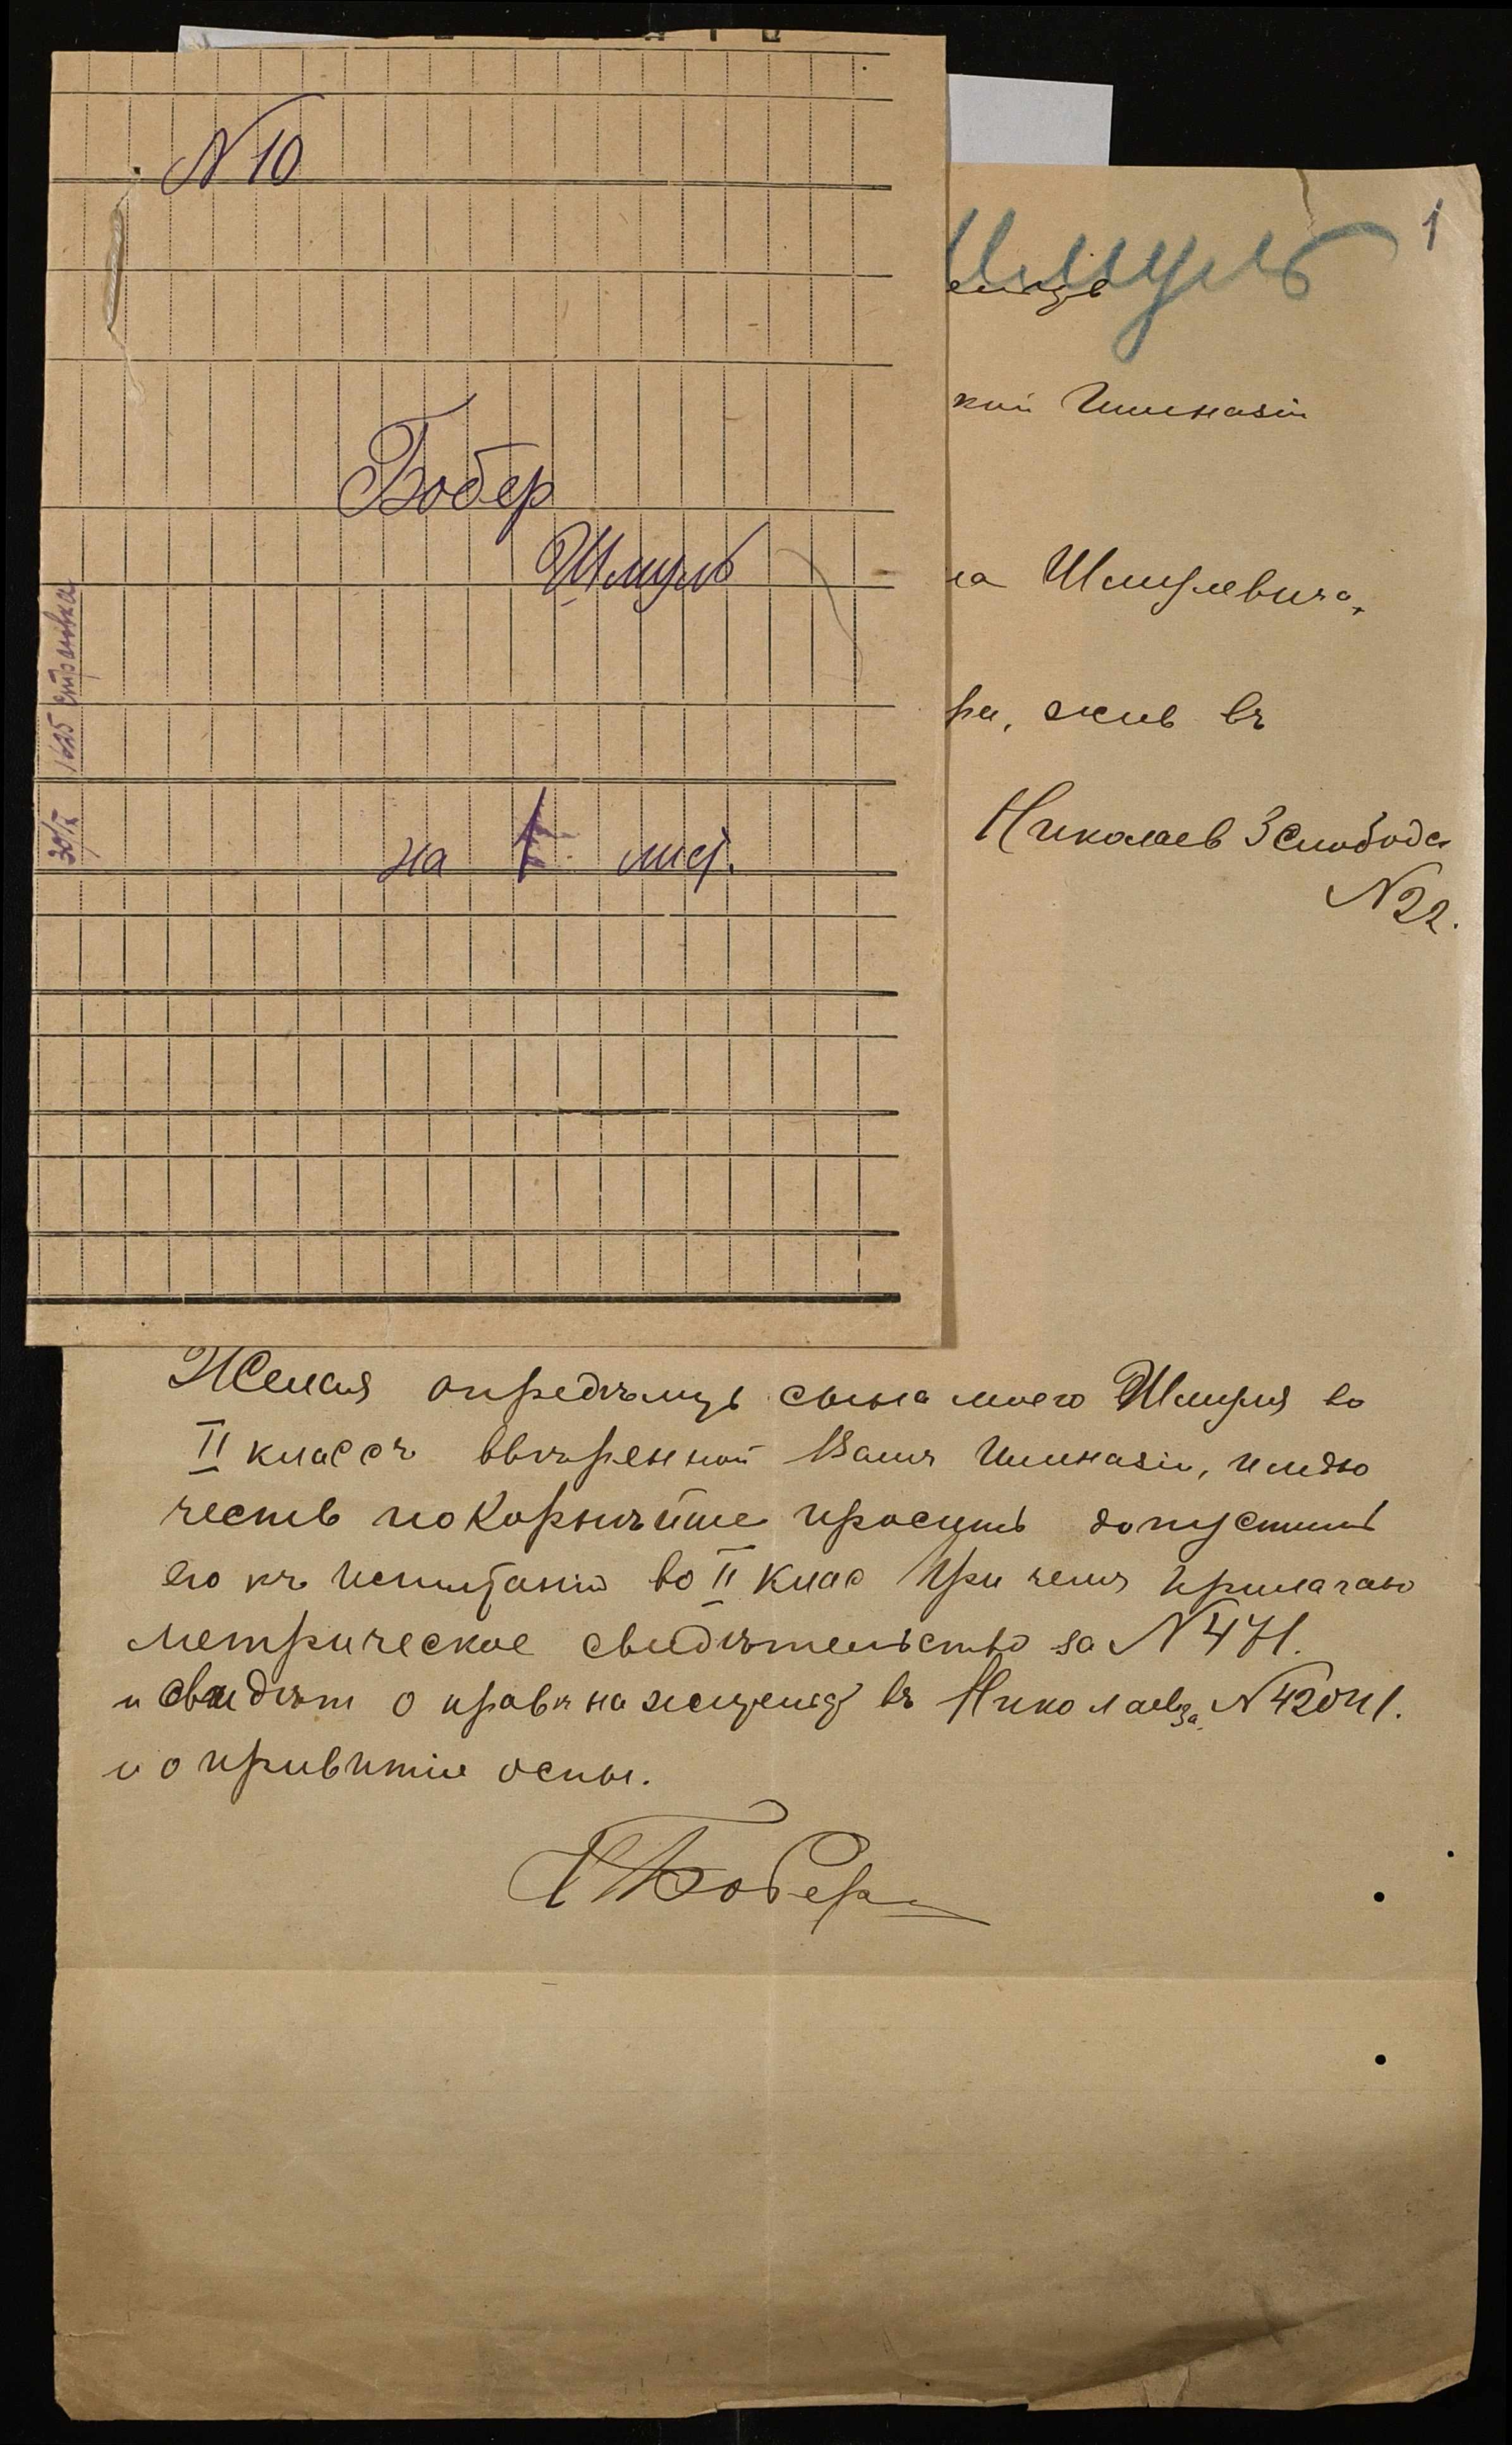 N 10
Бобер
Шмуль
на 1 лист.
1625
Шмуль
1
кой Гимназіи
на Шмулевича
ра, жив въ
Николаев 3 Слобода
N 22.
Желая опредѣлить сына моего Шмуля во
II классъ ввѣренной Вамъ Гимназіи, имѣю
честь покорнѣйше просить допустить
его къ испытанію во II клас При чемъ прилагаю
метрическое свидѣтельство за N 471.
и свидѣт о правѣ на жит въ Николаевѣ за N 42041.
и о привитіи оспы.
Бобер